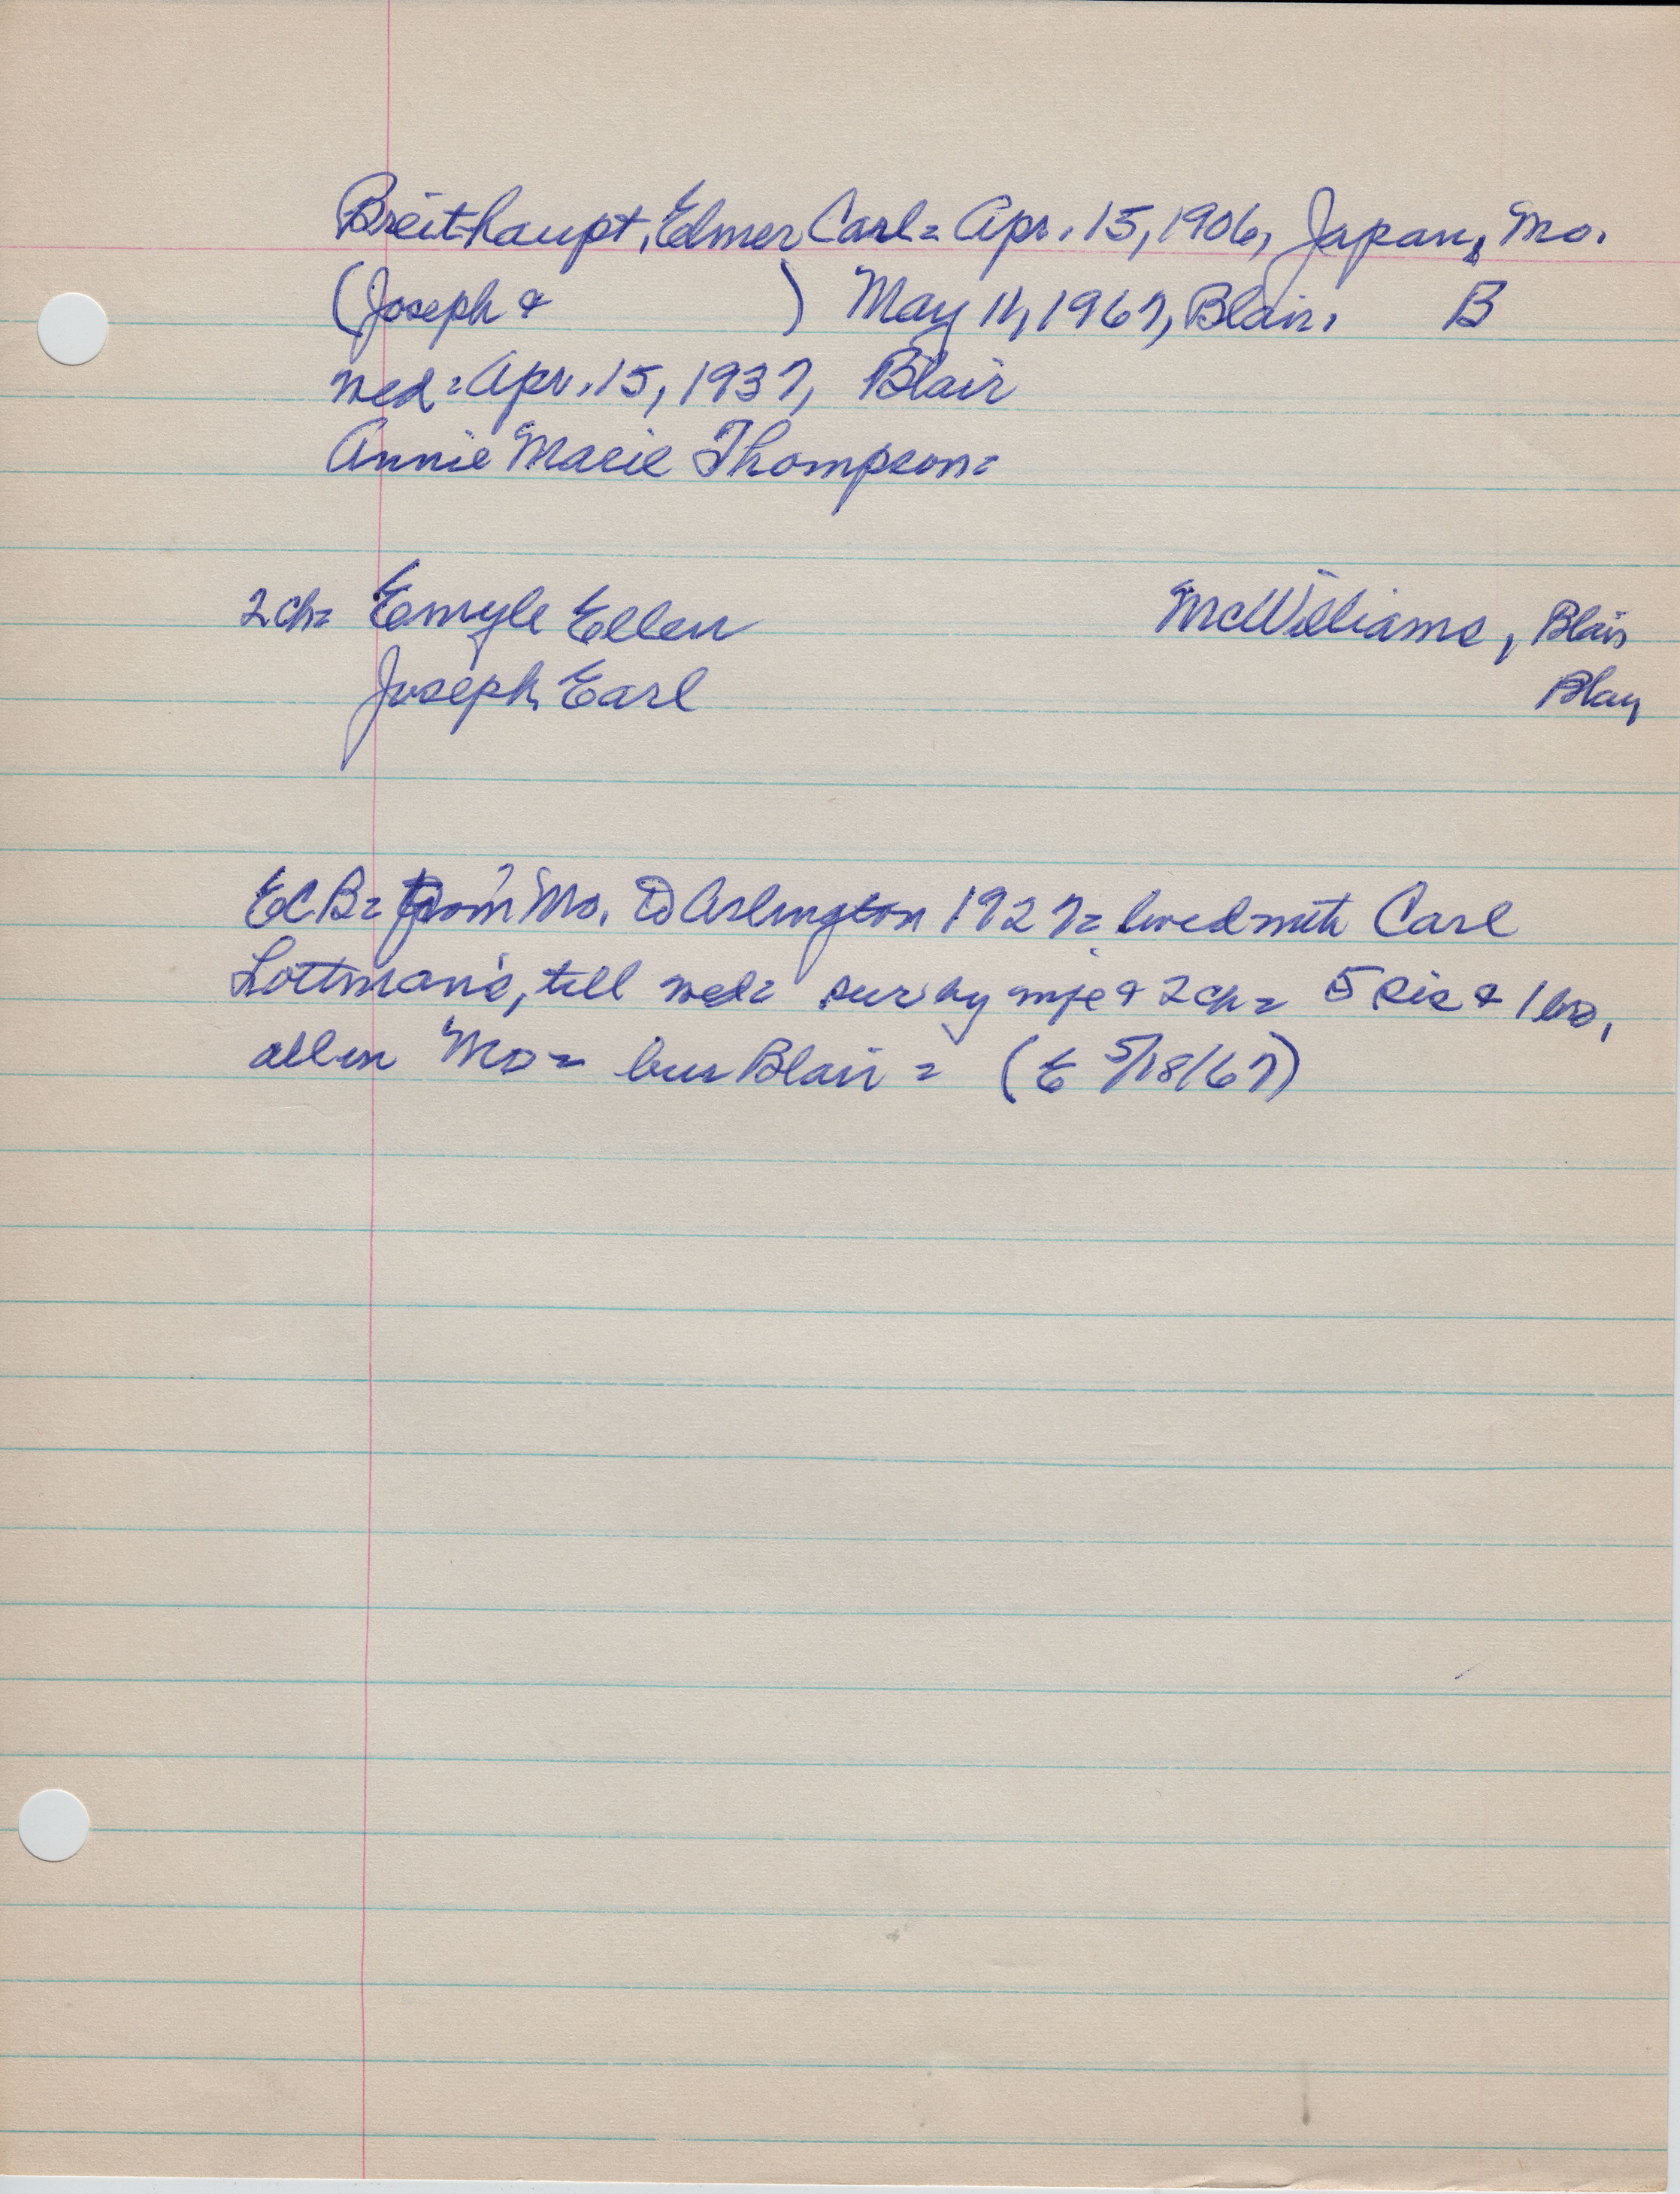 Breithaupt, Elmer Carl = Apr. 15, 1906, Japan, Mo.
(Joseph & ) May 11, 1967, Blair, B
wed = Apr. 15, 1937, Blair
Annie Marie Thompson =
2 ch = Emyle Ellen McWilliams, Blair
Joseph Earl Blair
ECB = from Mo. to Arlington 1927 = lived with Carl
Lottman's, till wed = sur by wife & 2 ch = 5 sis & 1 bro,
all in Mo = bur Blair = (E 5/18/67)